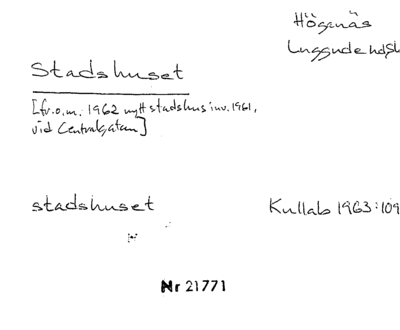 Höganäs
Luggude hds
Stadshuset
[fr.o.m. 1962 nytt stadshus inv. 1961,
vid Centralgatan]
stadshuset
Kullab 1963:109
Nr 21771